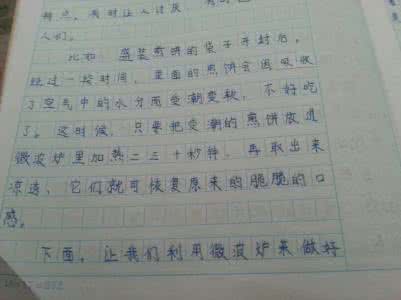 特点，有时让人讨厌
人们。
比如，盛装煎饼的袋子开封后，
经过一段时间，里面的煎饼会因吸收
了空气中的水分而受潮变软，不好吃
了。这时候，只要把受潮的煎饼放进
微波炉里加热二三十秒钟，再取出来
凉透，它们就可恢复原来的脆脆的口
感。
下面，让我们利用微波炉来做好